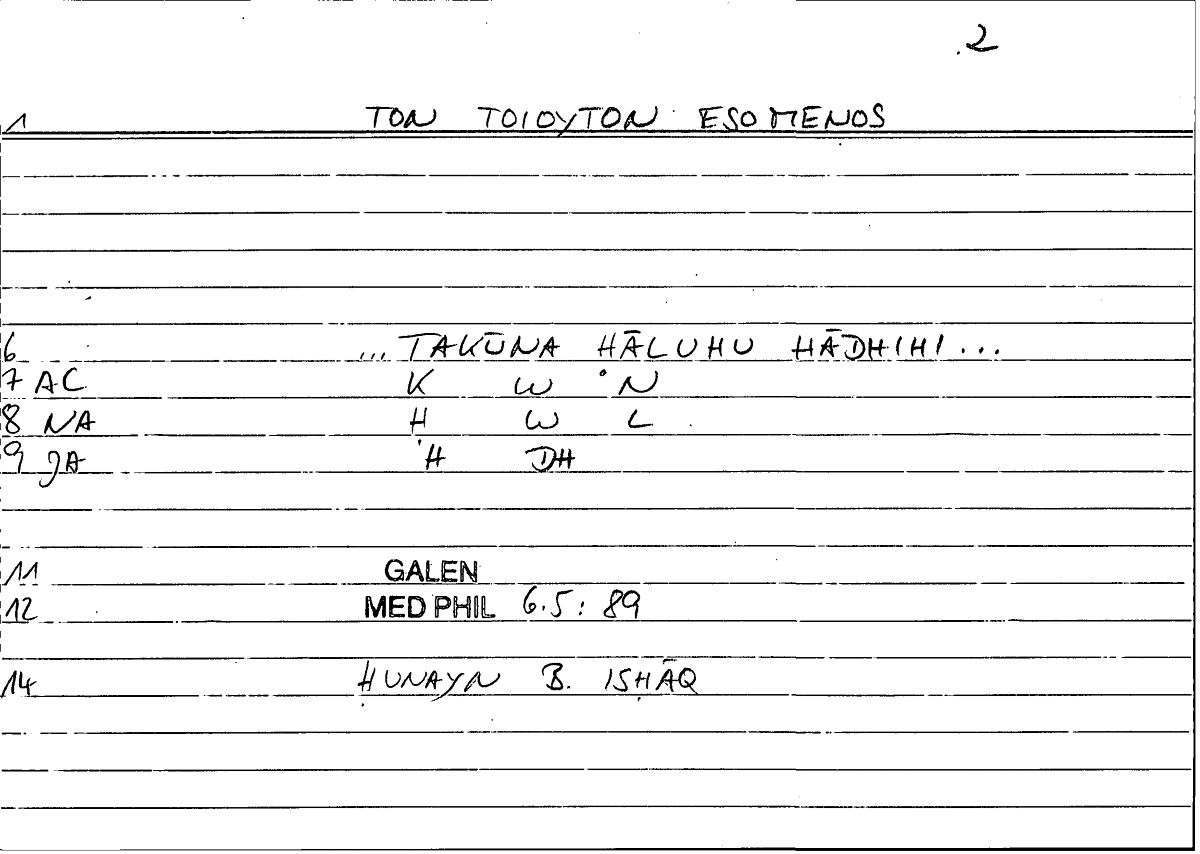 2
1 TON TOIOYTON ESOMENOS
6 ... TAKŪNA HĀLUHU HĀDHIHI ...
7 AC K W N
8 NA H W L
9 JA H DH
11 GALEN
12 MED PHIL 6.5: 89
14 ḤUNAYN B. ISḤĀQ